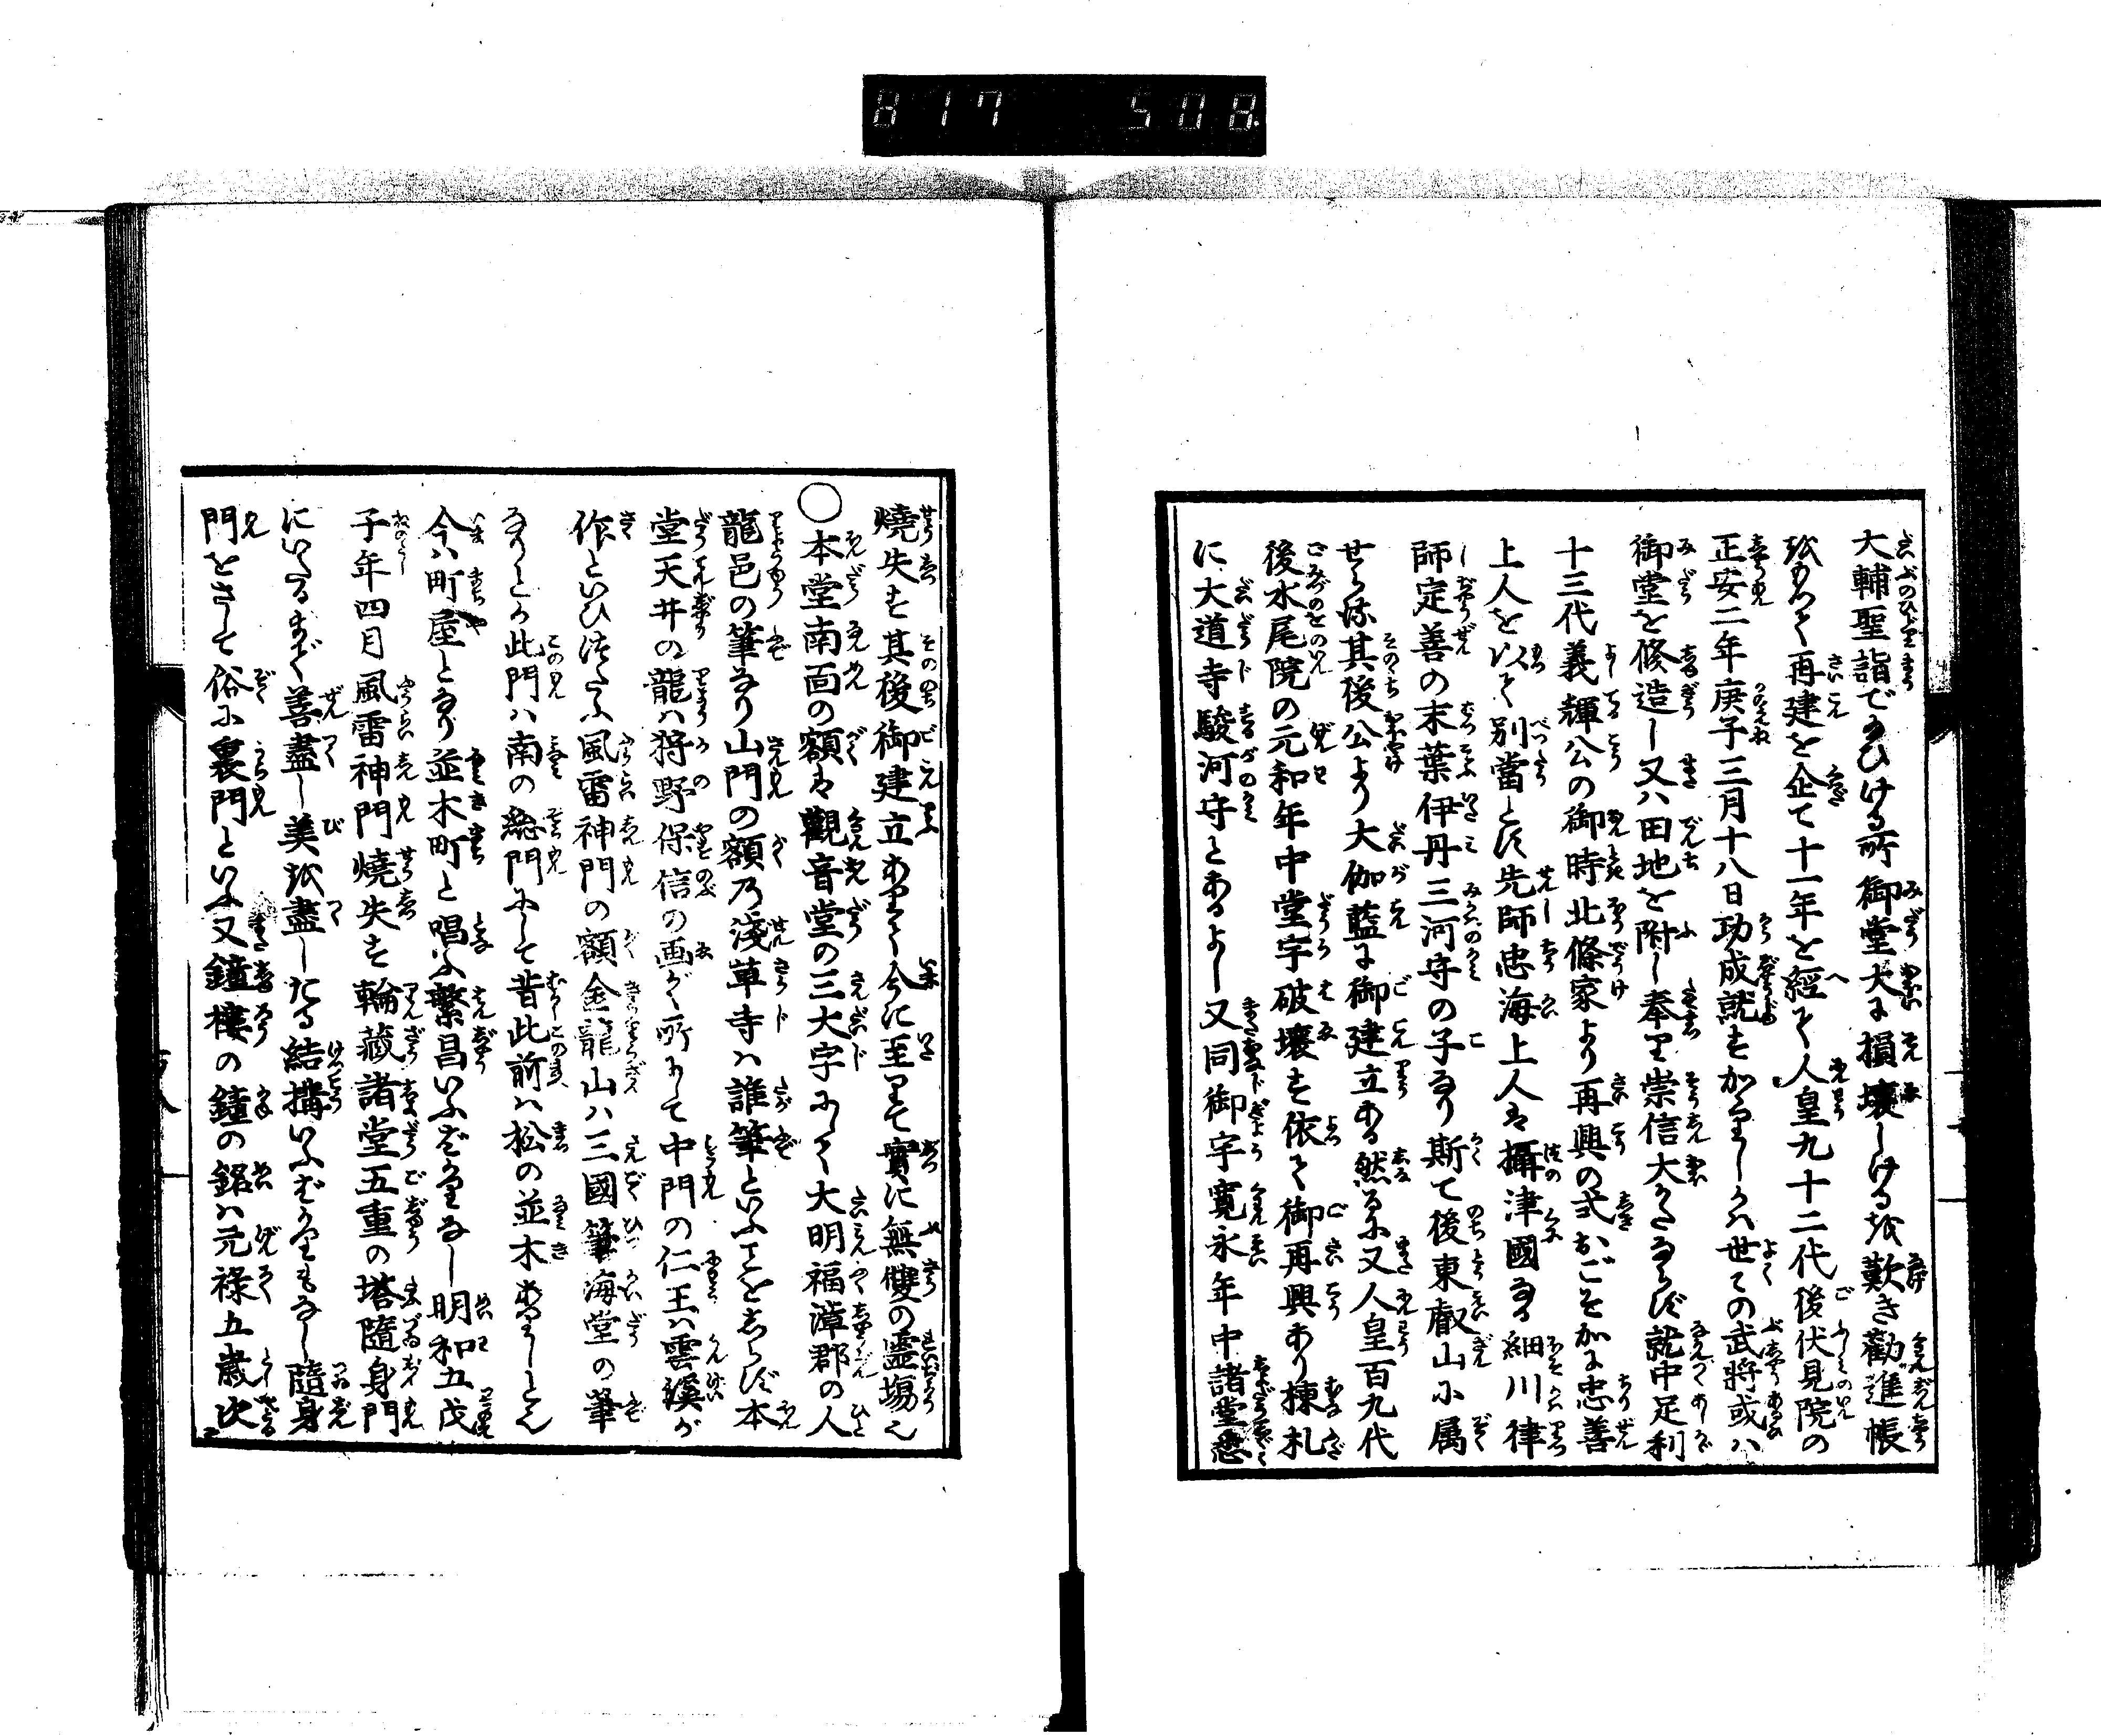 817 508
大輔聖詣で給ひける所御堂大に損壊しける を歎き勧進帳
をもつて再建を企て十一年を經て人皇九十二代後伏見院の
正安二年庚子三月十八日功成就すかありしかは世〻の武將或ハ
御堂を修造し又ハ田地を附し奉り崇信大かたならず就中足利
十三代義輝公の御時北條家より再興の
上人を以て別當とす先師忠海上人は攝津國なる細川律
師定善の末葉伊丹三河守の子なり斯て後東叡山に属
せらる其後公より大伽藍に御建立ある然るに又人皇百九代
後水尾院の元和年中堂宇破壊す依て御再興あり棟札
に大道寺駿河守とあるよし又同御宇寛永年中諸堂悉
燒失す其後御建立ありて今に至りて實に無雙の靈場也
○本堂南面の額は觀音堂の三大字にして大明福漳郡の人
龍邑の筆なり山門の額乃淺草寺ハ誰筆といふことをしらず本
堂天井の龍ハ狩野保信の画がく所にして中門の仁王ハ雲溪が
作といひ傳ふ風雷神門の額金龍山ハ三國筆海堂の筆
なりとか此門ハ南の総門にして昔此前ハ松の並木ありしとん
今ハ町屋となり並木町と唱ふ繁昌いふばかりなし明和五戊
子年四月風雷神門燒失す輪藏諸堂五重の塔隨身門
にいたるまで善盡し美を盡したる結構いふばかりもなし隨身
門をさして俗に裏門といふ又鐘樓の鐘の銘ハ元禄五歳次